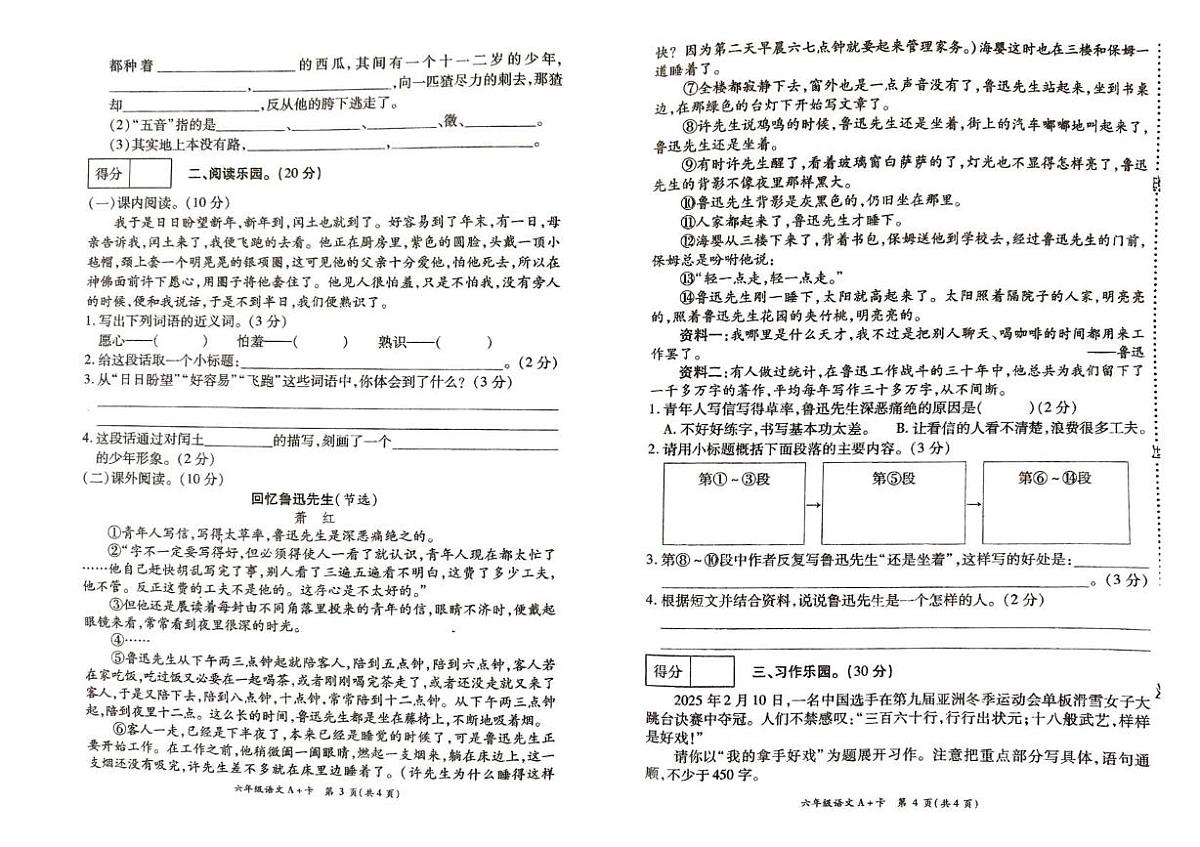 都种着________________的西瓜,其间有一个十一二岁的少年,
________________,________________,向一匹猹尽力的刺去,那猹
却________________,反从他的胯下逃走了。
(2)“五音”指的是________、________、________、徵、________。
(3)其实地上本没有路,________________,________________。
得分
二、阅读乐园。(20分)
(一)课内阅读。(10分)
我于是日日盼望新年,新年到,闰土也就到了。好容易到了年末,有一日,母
亲告诉我,闰土来了,我便飞跑的去看。他正在厨房里,紫色的圆脸,头戴一顶小
毡帽,颈上套一个明晃晃的银项圈,这可见他的父亲十分爱他,怕他死去,所以在
神佛面前许下愿心,用圈子将他套住了。他见人很怕羞,只是不怕我,没有旁人
的时候,便和我说话,于是不到半日,我们便熟识了。
1.写出下列词语的近义词。(3分)
愿心——(    ) 怕羞——(    ) 熟识——(    )
2.给这段话取一个小标题:________________。(2分)
3.从“日日盼望”“好容易”“飞跑”这些词语中,你体会到了什么?(3分)
4.这段话通过对闰土________的描写,刻画了一个________________
的少年形象。(2分)
(二)课外阅读。(10分)
回忆鲁迅先生(节选)
萧 红
①青年人写信,写得太草率,鲁迅先生是深恶痛绝之的。
②“字不一定要写得好,但必须得使人一看了就认识,青年人现在都太忙了
……他自己赶快胡乱写完了事,别人看了三遍五遍看不明白,这费了多少工夫,
他不管。反正这费的工夫不是他的。这存心是不太好的。”
③但他还是展读着每封由不同角落里投来的青年的信,眼睛不济时,便戴起
眼镜来看,常常看到夜里很深的时光。
④……
⑤鲁迅先生从下午两三点钟起就陪客人,陪到五点钟,陪到六点钟,客人若
在家吃饭,吃过饭又必要在一起喝茶,或者刚刚喝完茶走了,或者还没走就又来了
客人,于是又陪下去,陪到八点钟,十点钟,常常陪到十二点钟。从下午两三点钟
起,陪到夜里十二点。这么长的时间,鲁迅先生都是坐在藤椅上,不断地吸着烟。
⑥客人一走,已经是下半夜了,本来已经是睡觉的时候了,可是鲁迅先生正
要开始工作。在工作之前,他稍微阖一阖眼睛,燃起一支烟来,躺在床边上,这一
支烟还没有吸完,许先生差不多就在床里边睡着了。(许先生为什么睡得这样
六年级语文A+卡 第3页(共4页)
快?因为第二天早晨六七点钟就要起来管理家务。)海婴这时也在三楼和保姆一
道睡着了。
⑦全楼都寂静下去,窗外也是一点声音没有了,鲁迅先生站起来,坐到书桌
边,在那绿色的台灯下开始写文章了。
⑧许先生说鸡鸣的时候,鲁迅先生还是坐着,街上的汽车嘟嘟地叫起来了,
鲁迅先生还是坐着。
⑨有时许先生醒了,看着玻璃窗白萨萨的了,灯光也不显得怎样亮了,鲁迅
先生的背影不像夜里那样黑大。
⑩鲁迅先生背影是灰黑色的,仍旧坐在那里。
⑪人家都起来了,鲁迅先生才睡下。
⑫海婴从三楼下来了,背着书包,保姆送他到学校去,经过鲁迅先生的门前,
保姆总是吩咐他说:
⑬“轻一点走,轻一点走。”
⑭鲁迅先生刚一睡下,太阳就高起来了。太阳照着隔院子的人家,明亮亮
的,照着鲁迅先生花园的夹竹桃,明亮亮的。
资料一:我哪里是什么天才,我不过是把别人聊天、喝咖啡的时间都用来工
作罢了。 ——鲁迅
资料二:有人做过统计,在鲁迅工作战斗的三十年中,他总共为我们留下了
一千多万字的著作,平均每年写作三十多万字,从不间断。
1.青年人写信写得草率,鲁迅先生深恶痛绝的原因是(    )(2分)
A.不好好练字,书写基本功太差。 B.让看信的人看不清楚,浪费很多工夫。
2.请用小标题概括下面段落的主要内容。(3分)
第①~③段 → 第⑤段 → 第⑥~⑭段
3.第⑧~⑩段中作者反复写鲁迅先生“还是坐着”,这样写的好处是:________
________________。(3分)
4.根据短文并结合资料,说说鲁迅先生是一个怎样的人。(2分)
得分
三、习作乐园。(30分)
2025年2月10日,一名中国选手在第九届亚洲冬季运动会单板滑雪女子大
跳台决赛中夺冠。人们不禁感叹:“三百六十行,行行出状元;十八般武艺,样样
是好戏!”
请你以“我的拿手好戏”为题展开习作。注意把重点部分写具体,语句通
顺,不少于450字。
六年级语文A+卡 第4页(共4页)